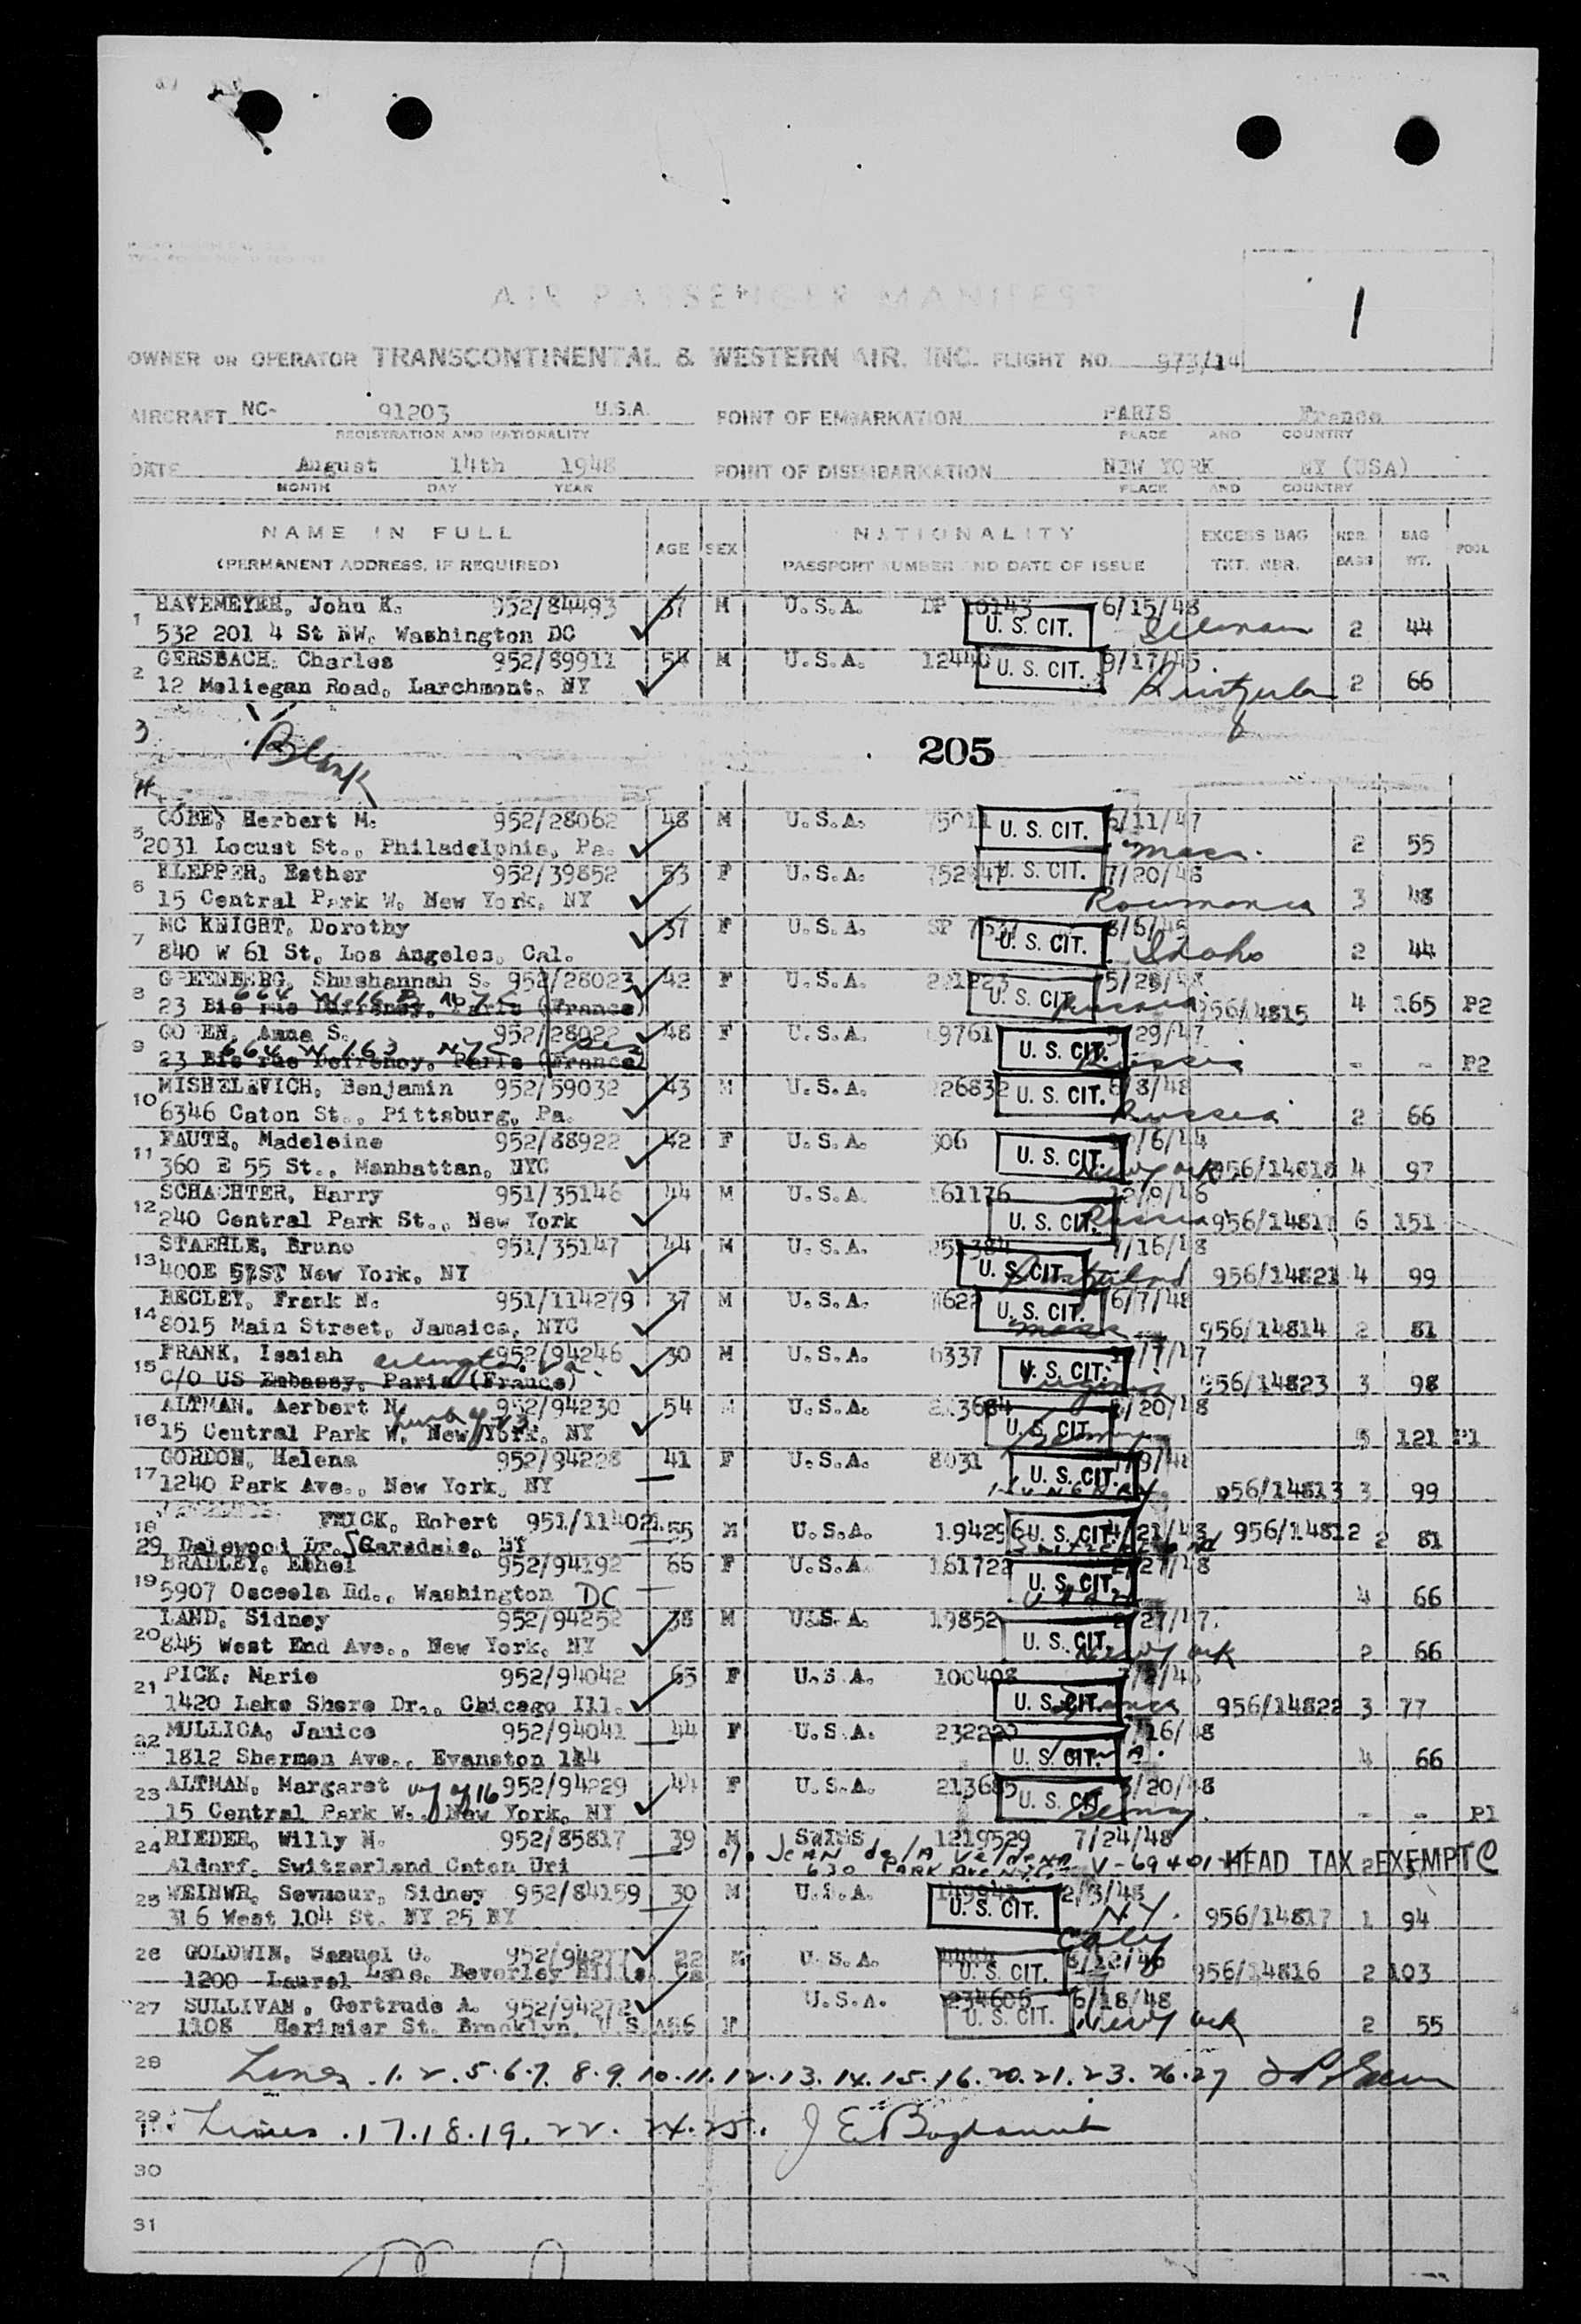 AIR PASSENGER MANIFEST
1
OWNER OR OPERATOR TRANSCONTINENTAL & WESTERN AIR, INC. FLIGHT NO. 973/14
AIRCRAFT NC- 91203 U.S.A. POINT OF EMBARKATION PARIS France
REGISTRATION AND NATIONALITY PLACE AND COUNTRY
DATE August 14th 1948 POINT OF DISEMBARKATION NEW YORK NY (USA)
MONTH DAY YEAR PLACE AND COUNTRY
NAME IN FULL AGE SEX NATIONALITY EXCESS BAG NBR. BAG POOL
(PERMANENT ADDRESS, IF REQUIRED) PASSPORT NUMBER AND DATE OF ISSUE TKT. NBR. BAGS WT.
1 HAVEMEYER, John K. 952/84493 37 M U.S.A. DP 10143 6/15/48
532 201 4 St NW. Washington DC U. S. CIT. 2 44
2 GERSBACH, Charles 952/89911 54 M U.S.A. 9/17/45
12 Moliegan Road, Larchmont, NY U. S. CIT. 2 66
3 Blank 205
4
5 COBE, Herbert M. 952/28062 48 M U.S.A. 75011 6/11/47
2031 Locust St., Philadelphia, Pa. U. S. CIT. Mass. 2 55
6 KLEPPER, Esther 952/39852 53 F U.S.A. 7/20/48
15 Central Park W. New York, NY U. S. CIT. Roumania 3 48
7 MC KNIGHT, Dorothy 37 F U.S.A.
840 W 61 St, Los Angeles, Cal. U. S. CIT. Idaho 2 44
8 GREENBERG, Shushannah S. 952/28023 42 F U.S.A. 221223
23 Bis rue Dufrenoy, Paris (France) U. S. CIT. Russia 956/14815 4 165 P2
9 COHEN, Anna S. 952/28022 48 F U.S.A. 5/29/47
664 W 163 NYC
23 Bis rue Dufrenoy, Paris (France) U. S. CIT. Russia - - P2
10 MISHELEVICH, Benjamin 952/59032 43 M U.S.A. 226832 6/8/48
6346 Caton St., Pittsburg, Pa. U. S. CIT. Russia 2 66
11 FAUTH, Madeleine 952/88922 42 F U.S.A. 306
360 E 55 St., Manhattan, NYC U. S. CIT. New York 956/14818 4 97
12 SCHACHTER, Harry 951/35146 44 M U.S.A. 161176 12/9/46
240 Central Park St., New York U. S. CIT. Russia 6 151
13 STAEHLE, Bruno 951/35147 44 M U.S.A. 7/16/48
400E 57ST New York, NY U. S. CIT. 956/14821 4 99
14 BEGLEY, Frank N. 951/114279 37 M U.S.A. 6/7/48
8015 Main Street, Jamaica, NYC U. S. CIT. Mass 956/14814 2 81
15 FRANK, Isaiah 952/94246 30 M U.S.A. 6337
Arlington Va
C/O US Embassy, Paris (France) U. S. CIT. Virginia 956/14823 3 98
16 ALTMAN, Aerbert N. 952/94230 54 M U.S.A. 213684 5/20/48
15 Central Park W. New York, NY U. S. CIT. 5 121 P1
17 GORDON, Helena 952/94228 41 F U.S.A. 8031
1240 Park Ave., New York, NY U. S. CIT. HUNGARY 956/14813 3 99
18 FRICK, Robert 951/114021 55 M U.S.A. 194296 U. S. CIT. 956/14812 2 81
29 Dalewood Dr. Scarsdale, NY
19 BRADLEY, Ethel 952/94192 66 F U.S.A. 161722
5907 Osceola Rd., Washington DC U. S. CIT. 4 66
20 LAND, Sidney 952/94252 38 M U.S.A. 19852
845 West End Ave., New York, NY U. S. CIT. New York 2 66
21 PICK, Marie 952/94042 65 F U.S.A. 100408
1420 Lake Shore Dr., Chicago Ill. U. S. CIT. 956/14822 3 77
22 MULLICA, Janice 952/94041 44 F U.S.A. 7/16/48
1812 Sherman Ave., Evanston U. S. CIT. 4 66
23 ALTMAN, Margaret 952/94229 44 F U.S.A. 213685 5/20/48
15 Central Park W., New York, NY U. S. CIT. - - P1
24 RIEDER, Willy N. 952/85817 39 M SWISS 1219529 7/24/48
Aldorf, Switzerland Caton Uri 630 PARK AVE NYC V-69401 HEAD TAX EXEMPT
25 WEINWR, Seymour, Sidney 952/84159 30 M U.S.A.
316 West 104 St. NY 25 NY U. S. CIT. N.Y. 956/14817 1 94
26 GOLDWIN, Samuel G. 952/94277 22 M U.S.A. 6/12/46
1200 Laurel Lane, Beverley Hills, Ca U. S. CIT. Calif 956/14816 2 103
27 SULLIVAN, Gertrude A. 952/94272 U.S.A. 234605 6/18/48
1108 Herimier St. Brooklyn, U.S.A 56 F U. S. CIT. New York 2 55
28 Lines .1.2.5.6.7. 8.9.10.11.12.13.14.15.16.20.21.23.26.27
29 Lines .17.18.19.22. 24.25.
30
31